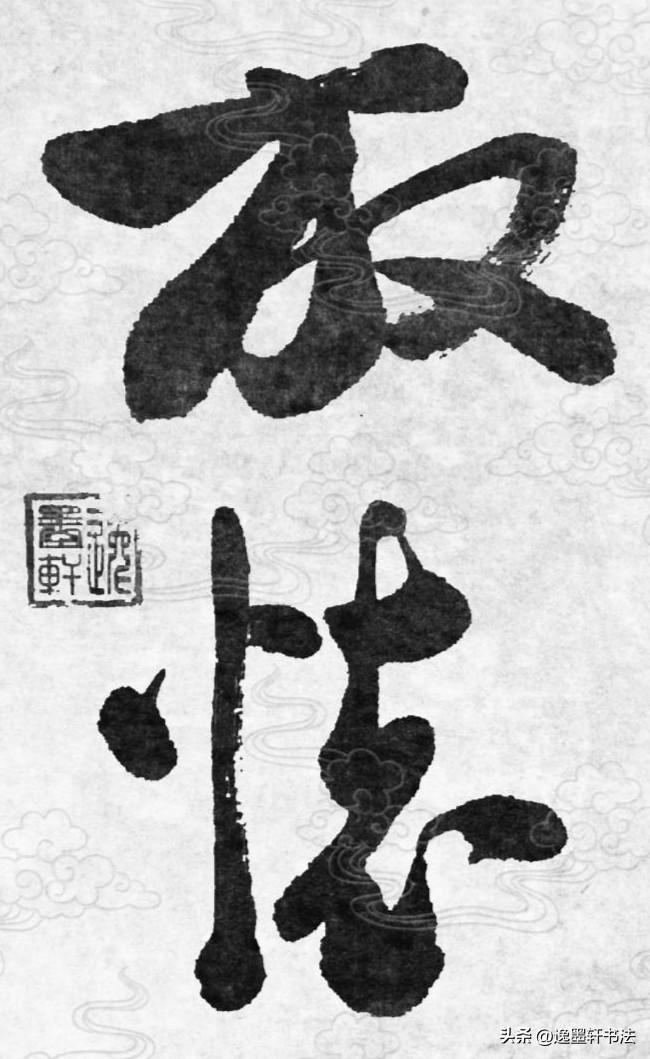 放
懷
逸墨軒
头条 @逸墨轩书法